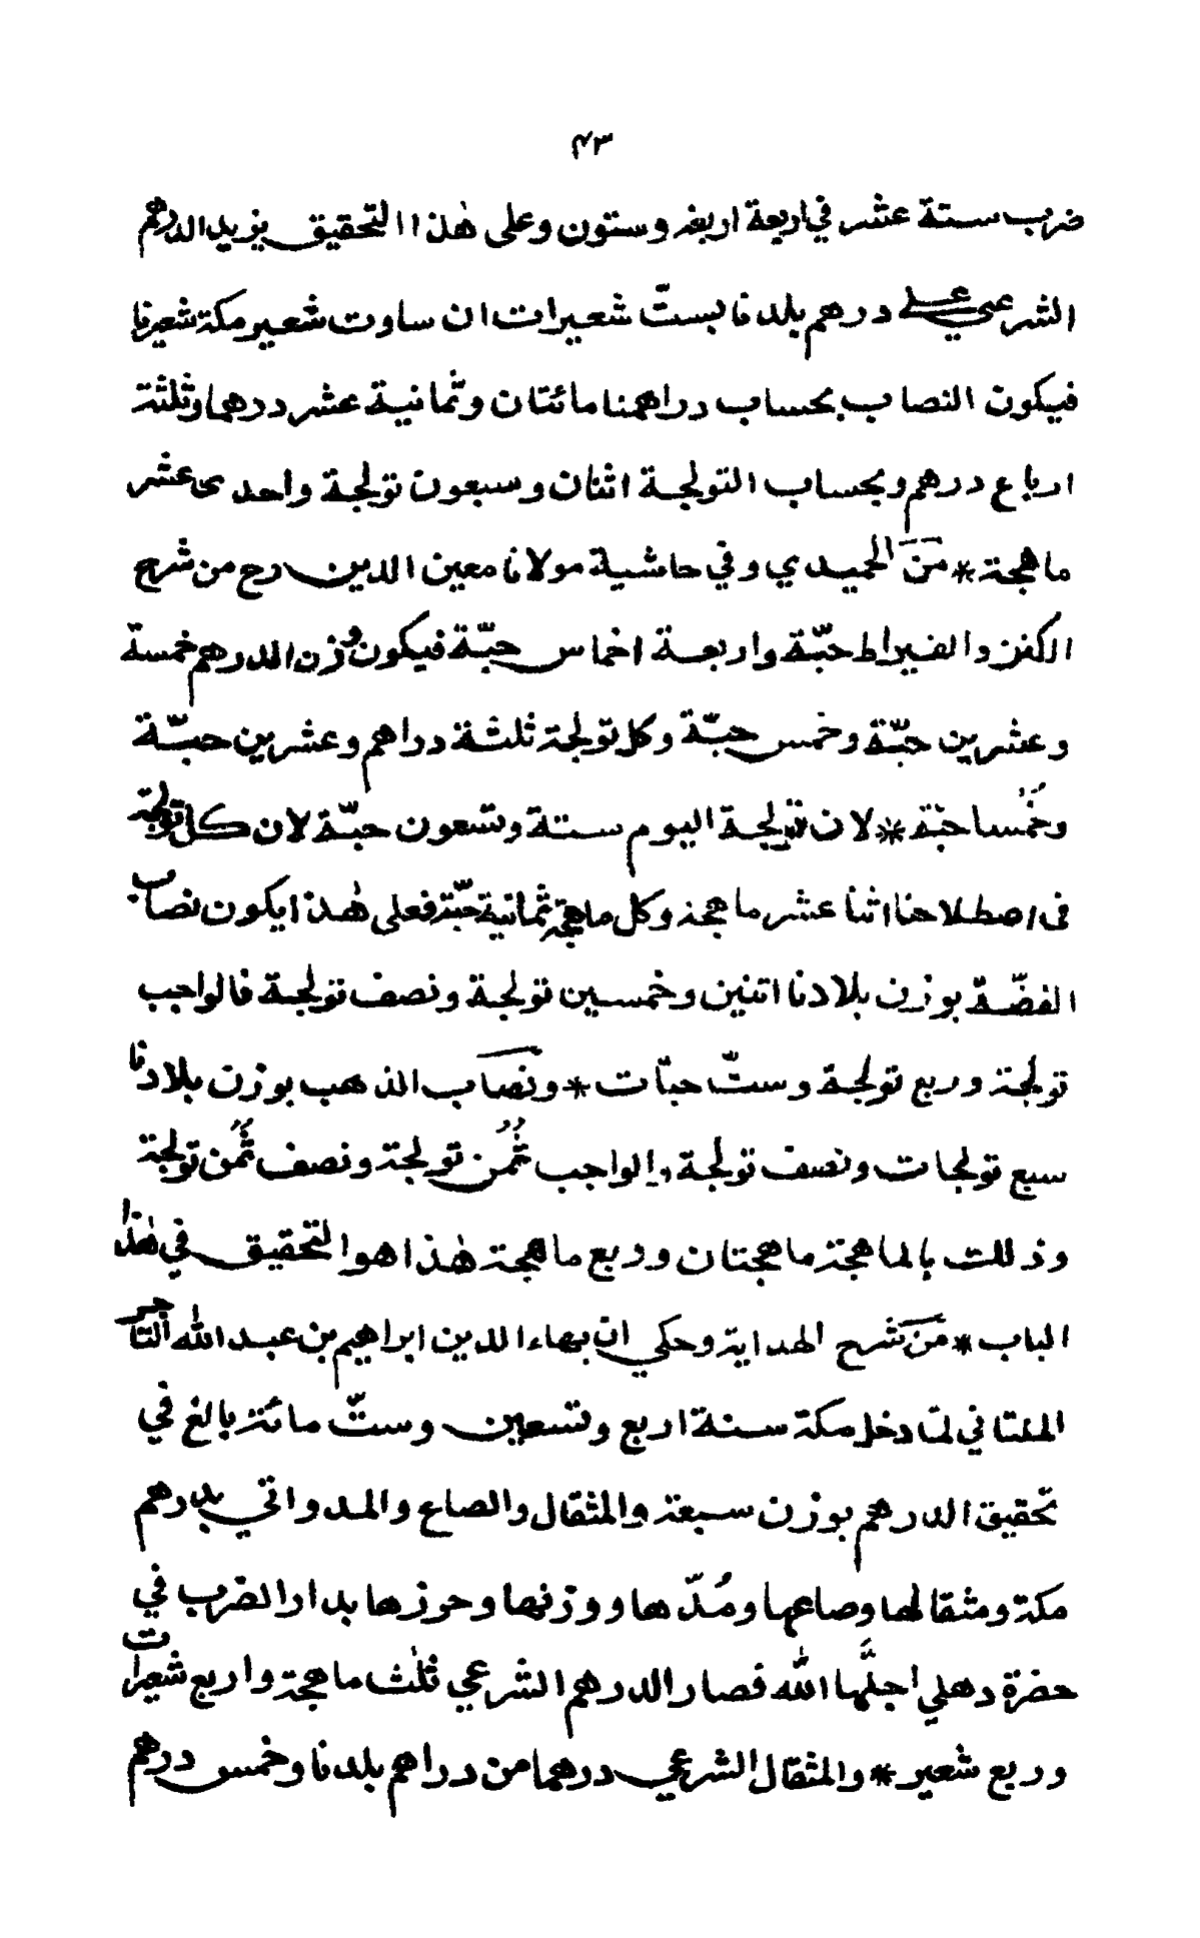 ۴۳
ضرب ستة عشر في اربعة اربعة وستون وعلى هٰذا التحقيق يزيد الدرهم
الشرعي على درهم بلدنا بستّ شعيرات ان ساوت شعير مكة شعيرنا
فيكون النصاب بحساب دراهمنا مائتان وثمانية عشر درهما وثلثة
ارباع درهم وبحساب التولجة اثنان وسبعون تولجة واحدى عشر
ماهجة * من الحميدي وفي حاشية مولانا معين الدين رح من شرح
الكنز والقيراط حبّة واربعة اخماس حبّة فيكون وزن الدرهم خمسة
وعشرين حبّة وخمس حبّة وكل تولجة ثلثة دراهم وعشرين حبّة
وخُمُسا حبّة * لان تولجة اليوم ستة وتسعون حبّة لان كل تولجة
فى اصطلاحنا اثنا عشر ماهجة وكل ماهجة ثمانية حبّة فعلى هٰذا يكون نصاب
الفضّة بوزن بلادنا اثنين وخمسين تولجة ونصف تولجة فالواجب
تولجة وربع تولجة وستّ حبّات * ونصاب الذهب بوزن بلادنا
سبع تولجات ونصف تولجة والواجب ثُمُن تولجة ونصف ثُمُن تولجة
وذلك بالماهجة ماهجتان وربع ماهجة هٰذا هو التحقيق في هٰذا
الباب * من شرح الهداية وحكي ان بهاء الدين ابراهيم بن عبد الله التاجر
الملتاني لمّا دخل مكة سنة اربع وتسعين وستّ مائة بالغ في
تحقيق الدرهم بوزن سبعة والمثقال والصاع والمد واتي بدرهم
مكة ومثقالها وصاعها ومُدّها ووزنها وحوزها بدار الضرب في
حضرة دهلي اجلَّها الله فصار الدرهم الشرعي ثلٰث ماهجة واربع شعيرات
وربع شعير * والمثقال الشرعي درهما من دراهم بلدنا وخمس درهم